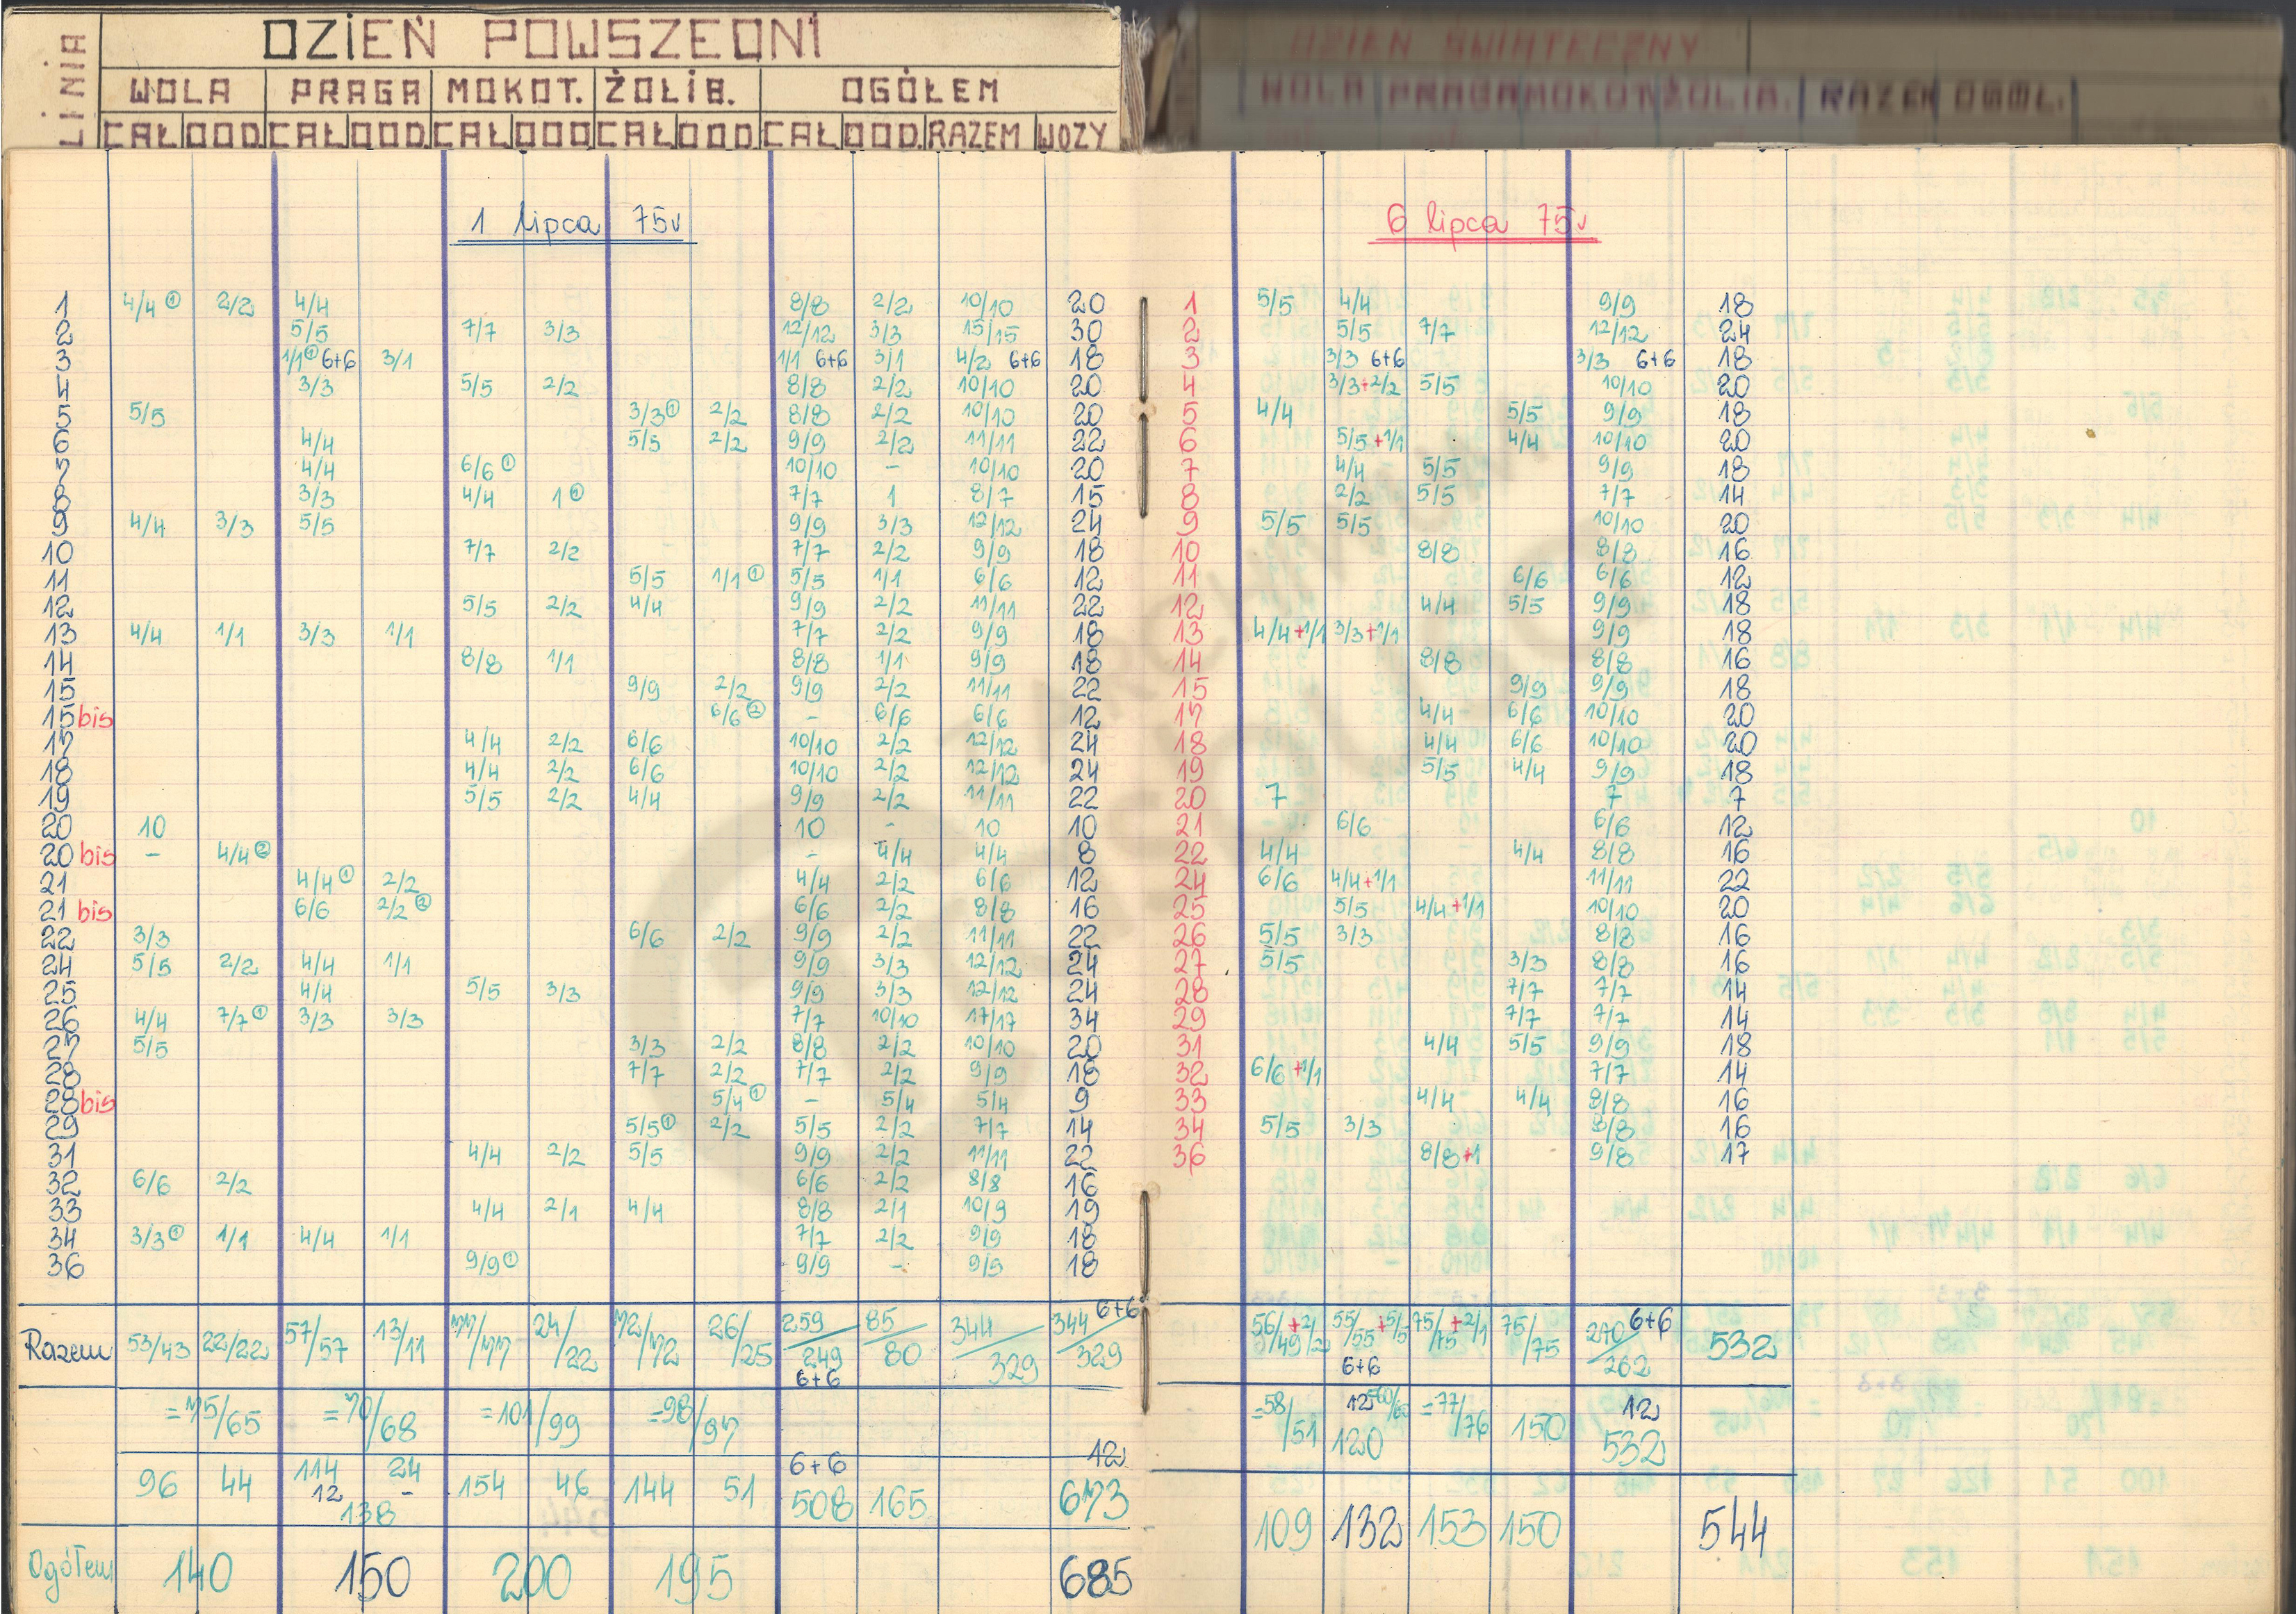 LINIA
DZIEŃ POWSZEDNI
WOLA PRAGA MOKOT. ŻOLIB. OGÓŁEM
CAŁ ODD. CAŁ ODD. CAŁ ODD CAŁ ODD. CAŁ ODD. RAZEM WOZY
1 lipca 75r
1 4/4 ① 2/2 4/4 8/8 2/2 10/10 20
2 5/5 7/7 3/3 12/12 3/3 15/15 30
3 1/1① 6+6 3/1 1/1 6+6 3/1 4/2 6+6 18
4 3/3 5/5 2/2 8/8 2/2 10/10 20
5 5/5 3/3① 2/2 8/8 2/2 10/10 20
6 4/4 5/5 2/2 9/9 2/2 11/11 22
7 4/4 6/6① 10/10 - 10/10 20
8 3/3 4/4 1① 7/7 1 8/7 15
9 4/4 3/3 5/5 9/9 3/3 12/12 24
10 7/7 2/2 7/7 2/2 9/9 18
11 5/5 1/1① 5/5 1/1 6/6 12
12 5/5 2/2 4/4 9/9 2/2 11/11 22
13 4/4 1/1 3/3 1/1 7/7 2/2 9/9 18
14 8/8 1/1 8/8 1/1 9/9 18
15 9/9 2/2 9/9 2/2 11/11 22
15 bis 6/6② - 6/6 6/6 12
17 4/4 2/2 6/6 10/10 2/2 12/12 24
18 4/4 2/2 6/6 10/10 2/2 12/12 24
19 5/5 2/2 4/4 9/9 2/2 11/11 22
20 10 10 - 10 10
20 bis - 4/4② - 4/4 4/4 8
21 4/4① 2/2 4/4 2/2 6/6 12
21 bis 6/6 2/2② 6/6 2/2 8/8 16
22 3/3 6/6 2/2 9/9 2/2 11/11 22
24 5/5 2/2 4/4 1/1 9/9 3/3 12/12 24
25 4/4 5/5 3/3 9/9 3/3 12/12 24
26 4/4 7/7① 3/3 3/3 7/7 10/10 17/17 34
27 5/5 3/3 2/2 8/8 2/2 10/10 20
28 7/7 2/2 7/7 2/2 9/9 18
28 bis 5/4① - 5/4 5/4 9
29 5/5① 2/2 5/5 2/2 7/7 14
31 4/4 2/2 5/5 9/9 2/2 11/11 22
32 6/6 2/2 6/6 2/2 8/8 16
33 4/4 2/1 4/4 8/8 2/1 10/9 19
34 3/3① 1/1 4/4 1/1 7/7 2/2 9/9 18
36 9/9① 9/9 - 9/9 18
Razem 53/43 22/22 57/57 13/11 77/77 24/22 72/72 26/25 259/249 6+6 85/80 344/329 344/329 6+6
=75/65 =70/68 =101/99 =98/97
96 44 114 24 154 46 144 51 6+6 12
12 - 508 165 673
138
Ogółem 140 150 200 195 685
DZIEŃ ŚWIĄTECZNY
WOLA PRAGA MOKOT ŻOLIB. RAZEM OGÓŁ.
6 lipca 75r
1 5/5 4/4 9/9 18
2 5/5 7/7 12/12 24
3 3/3 6+6 3/3 6+6 18
4 3/3+2/2 5/5 10/10 20
5 4/4 5/5 9/9 18
6 5/5+1/1 4/4 10/10 20
7 4/4 5/5 9/9 18
8 2/2 5/5 7/7 14
9 5/5 5/5 10/10 20
10 8/8 8/8 16
11 6/6 6/6 12
12 4/4 5/5 9/9 18
13 4/4+1/1 3/3+1/1 9/9 18
14 8/8 8/8 16
15 9/9 9/9 18
17 4/4 6/6 10/10 20
18 4/4 6/6 10/10 20
19 5/5 4/4 9/9 18
20 7 7 7
21 6/6 6/6 12
22 4/4 4/4 8/8 16
24 6/6 4/4+1/1 11/11 22
25 5/5 4/4+1/1 10/10 20
26 5/5 3/3 8/8 16
27 5/5 3/3 8/8 16
28 7/7 7/7 14
29 7/7 7/7 14
31 4/4 5/5 9/9 18
32 6/6+1/1 7/7 14
33 4/4 4/4 8/8 16
34 5/5 3/3 8/8 16
36 8/8+1 9/8 17
56/49+2/2 55/55+5/5 6+6 75/75+2/1 75/75 270/262 6+6 532
=58/51 12 =60/60 120 =77/76 150 12 532
109 132 153 150 544